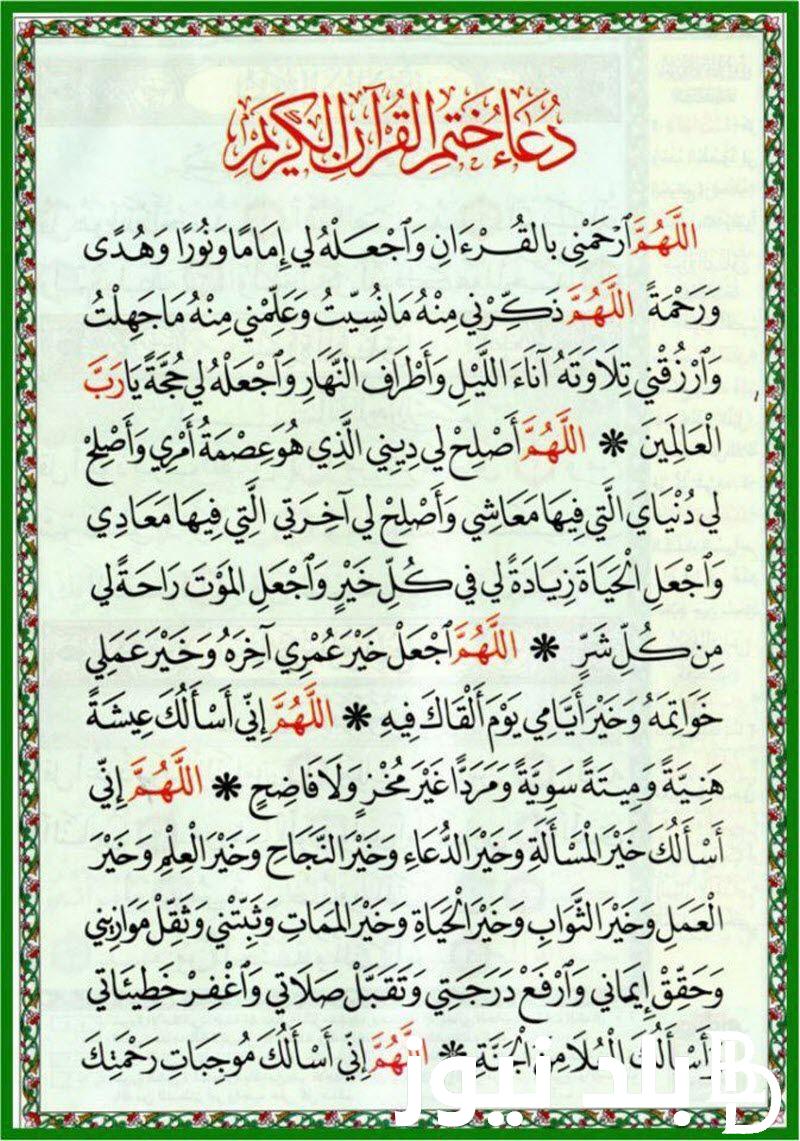 دُعَاءُ خَتْمِ الْقُرْآنِ الْكَرِيمِ
اللَّهُمَّ ٱرْحَمْنِي بِالقُرْءَانِ وَٱجْعَلْهُ لِي إِمَامًا وَنُورًا وَهُدًى
وَرَحْمَةً اللَّهُمَّ ذَكِّرْنِي مِنْهُ مَانُسِّيتُ وَعَلِّمْنِي مِنْهُ مَاجَهِلْتُ
وَٱرْزُقْنِي تِلَاوَتَهُ آنَاءَ اللَّيْلِ وَأَطْرَافَ النَّهَارِ وَٱجْعَلْهُ لِي حُجَّةً يَارَبَّ
الْعَالَمِينَ * اللَّهُمَّ أَصْلِحْ لِي دِينِي الَّذِي هُوَ عِصْمَةُ أَمْرِي وَأَصْلِحْ
لِي دُنْيَايَ الَّتِي فِيهَا مَعَاشِي وَأَصْلِحْ لِي آخِرَتِي الَّتِي فِيهَا مَعَادِي
وَٱجْعَلِ الْحَيَاةَ زِيَادَةً لِي فِي كُلِّ خَيْرٍ وَٱجْعَلِ المَوْتَ رَاحَةً لِي
مِن كُلِّ شَرٍّ * اللَّهُمَّ ٱجْعَلْ خَيْرَ عُمْرِي آخِرَهُ وَخَيْرَ عَمَلِي
خَوَاتِمَهُ وَخَيْرَ أَيَّامِي يَوْمَ أَلْقَاكَ فِيهِ * اللَّهُمَّ إِنِّي أَسْأَلُكَ عِيشَةً
هَنِيَّةً وَمِيتَةً سَوِيَّةً وَمَرَدًّا غَيْرَ مُخْزٍ وَلَا فَاضِحٍ * اللَّهُمَّ إِنِّي
أَسْأَلُكَ خَيْرَ المَسْأَلَةِ وَخَيْرَ الدُّعَاءِ وَخَيْرَ النَّجَاحِ وَخَيْرَ الْعِلْمِ وَخَيْرَ
الْعَمَلِ وَخَيْرَ الثَّوَابِ وَخَيْرَ الْحَيَاةِ وَخَيْرَ المَمَاتِ وَثَبِّتْنِي وَثَقِّلْ مَوَازِينِي
وَحَقِّقْ إِيمَانِي وَٱرْفَعْ دَرَجَتِي وَتَقَبَّلْ صَلَاتِي وَٱغْفِرْ خَطِيئَاتِي
وَأَسْأَلُكَ الْعُلَا مِنَ الْجَنَّةِ * اللَّهُمَّ إِنِّي أَسْأَلُكَ مُوجِبَاتِ رَحْمَتِكَ
بلد نيوز